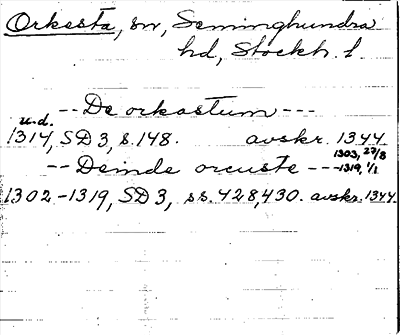 Orkesta, sn, Seminghundra
hd, Stockh. l.
-- De orkastum ---
u.d.
1314, SD 3, s. 148. avskr. 1344.
1303, 27/8
-- Deinde orcuste --- 1319, 1/1
1302-1319, SD 3, ss. 428, 430. avskr. 1344.